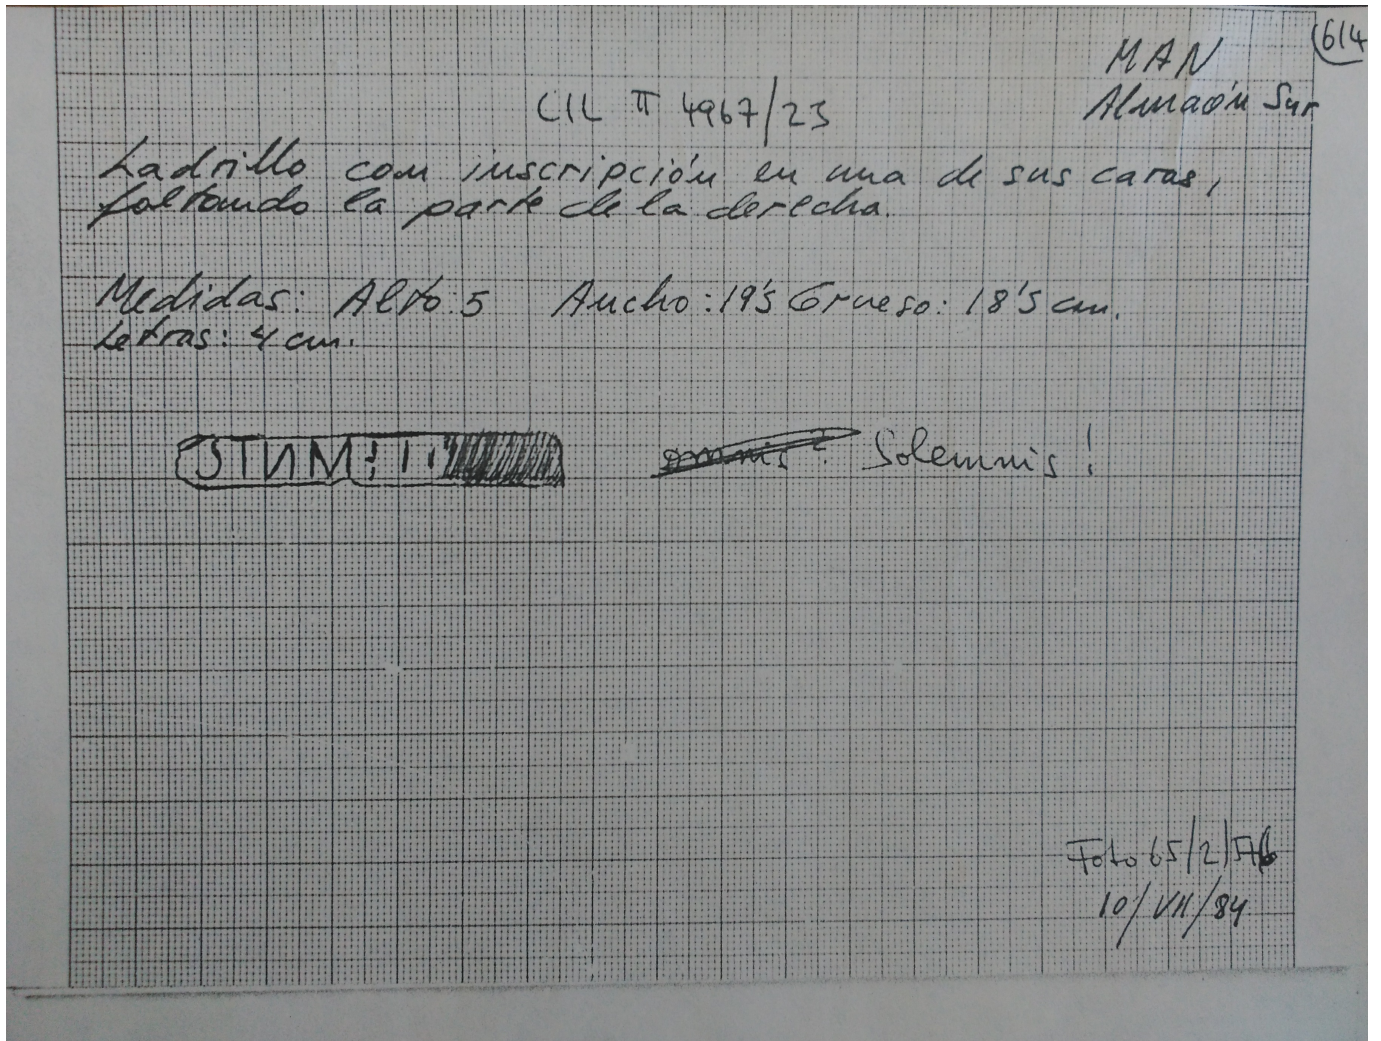 614
MAN
Almacén Sur
CIL II 4967/23
Ladrillo con inscripción en una de sus caras,
faltando la parte de la derecha.
Medidas: Alto: 5 Ancho: 19'5 Grueso: 18'5 cm.
Letras: 4 cm.
omnis? Solemnis!
Foto 65/2/
10/VII/84